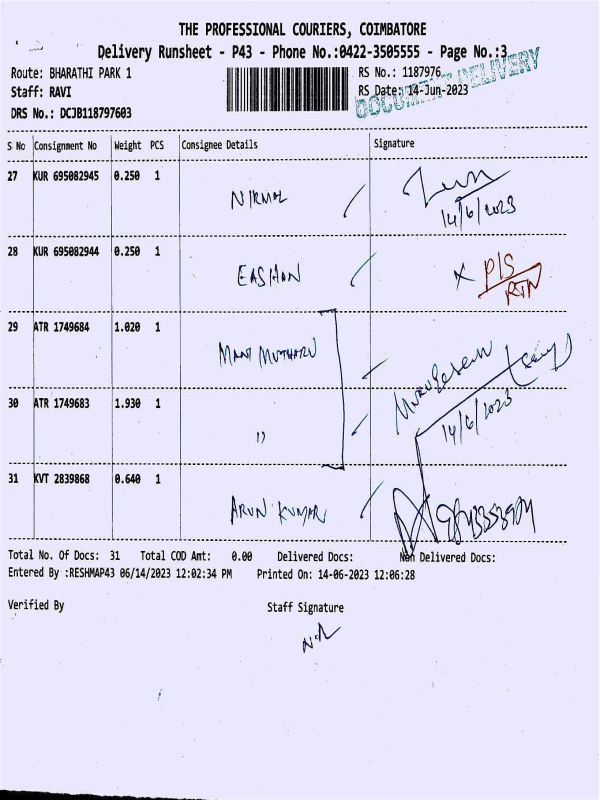 THE PROFESSIONAL COURIERS, COIMBATORE
Delivery Runsheet - P43 - Phone No.:0422-3505555 - Page No.:3
Route: BHARATHI PARK 1 RS No.: 1187976
Staff: RAVI RS Date: 14-Jun-2023
DOCUMENT DELIVERY
DRS No.: DCJB118797603
S No Consignment No Weight PCS Consignee Details Signature
27 KUR 695082945 0.250 1 NIRMAL
14/6/2023
28 KUR 695082944 0.250 1 EASHAN X P/S
RTN
29 ATR 1749684 1.020 1 MANI MUTHARU
Murugesan
30 ATR 1749683 1.930 1 "
14/6/2023
31 KVT 2839868 0.640 1 ARUN KUMAR
Total No. Of Docs: 31 Total COD Amt: 0.00 Delivered Docs: Non Delivered Docs:
Entered By :RESHMAP43 06/14/2023 12:02:34 PM Printed On: 14-06-2023 12:06:28
Verified By Staff Signature